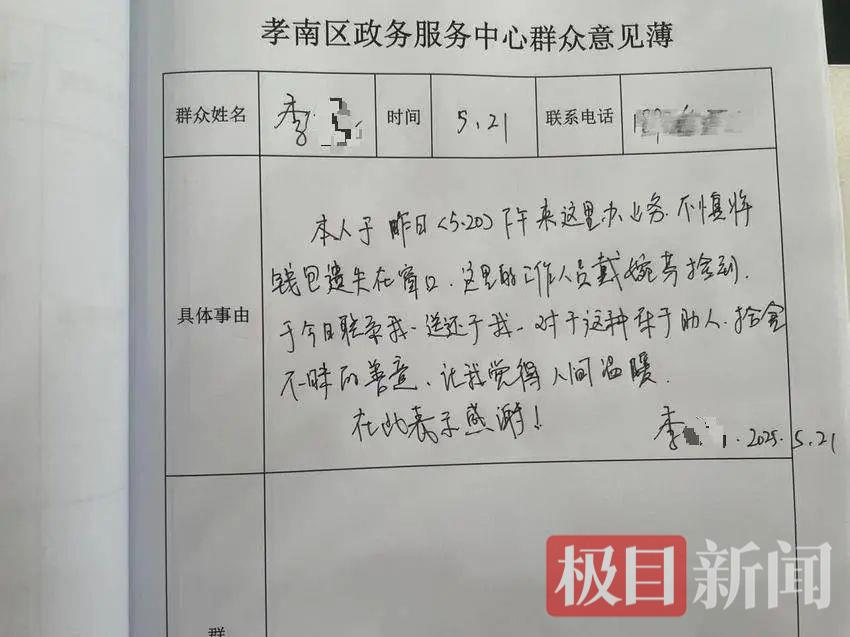 孝南区政务服务中心群众意见薄
群众姓名 李 时间 5.21 联系电话
具体事由
本人于昨日(5.20)下午来这里办业务.不慎将
钱包遗失在窗口.这里的工作人员戴婉芳捡到.
于今日联系我.送还于我.对于这种乐于助人.拾金
不昧的善意、让我觉得人间温暖.
在此表示感谢!
李 .2025.5.21
群
极目新闻